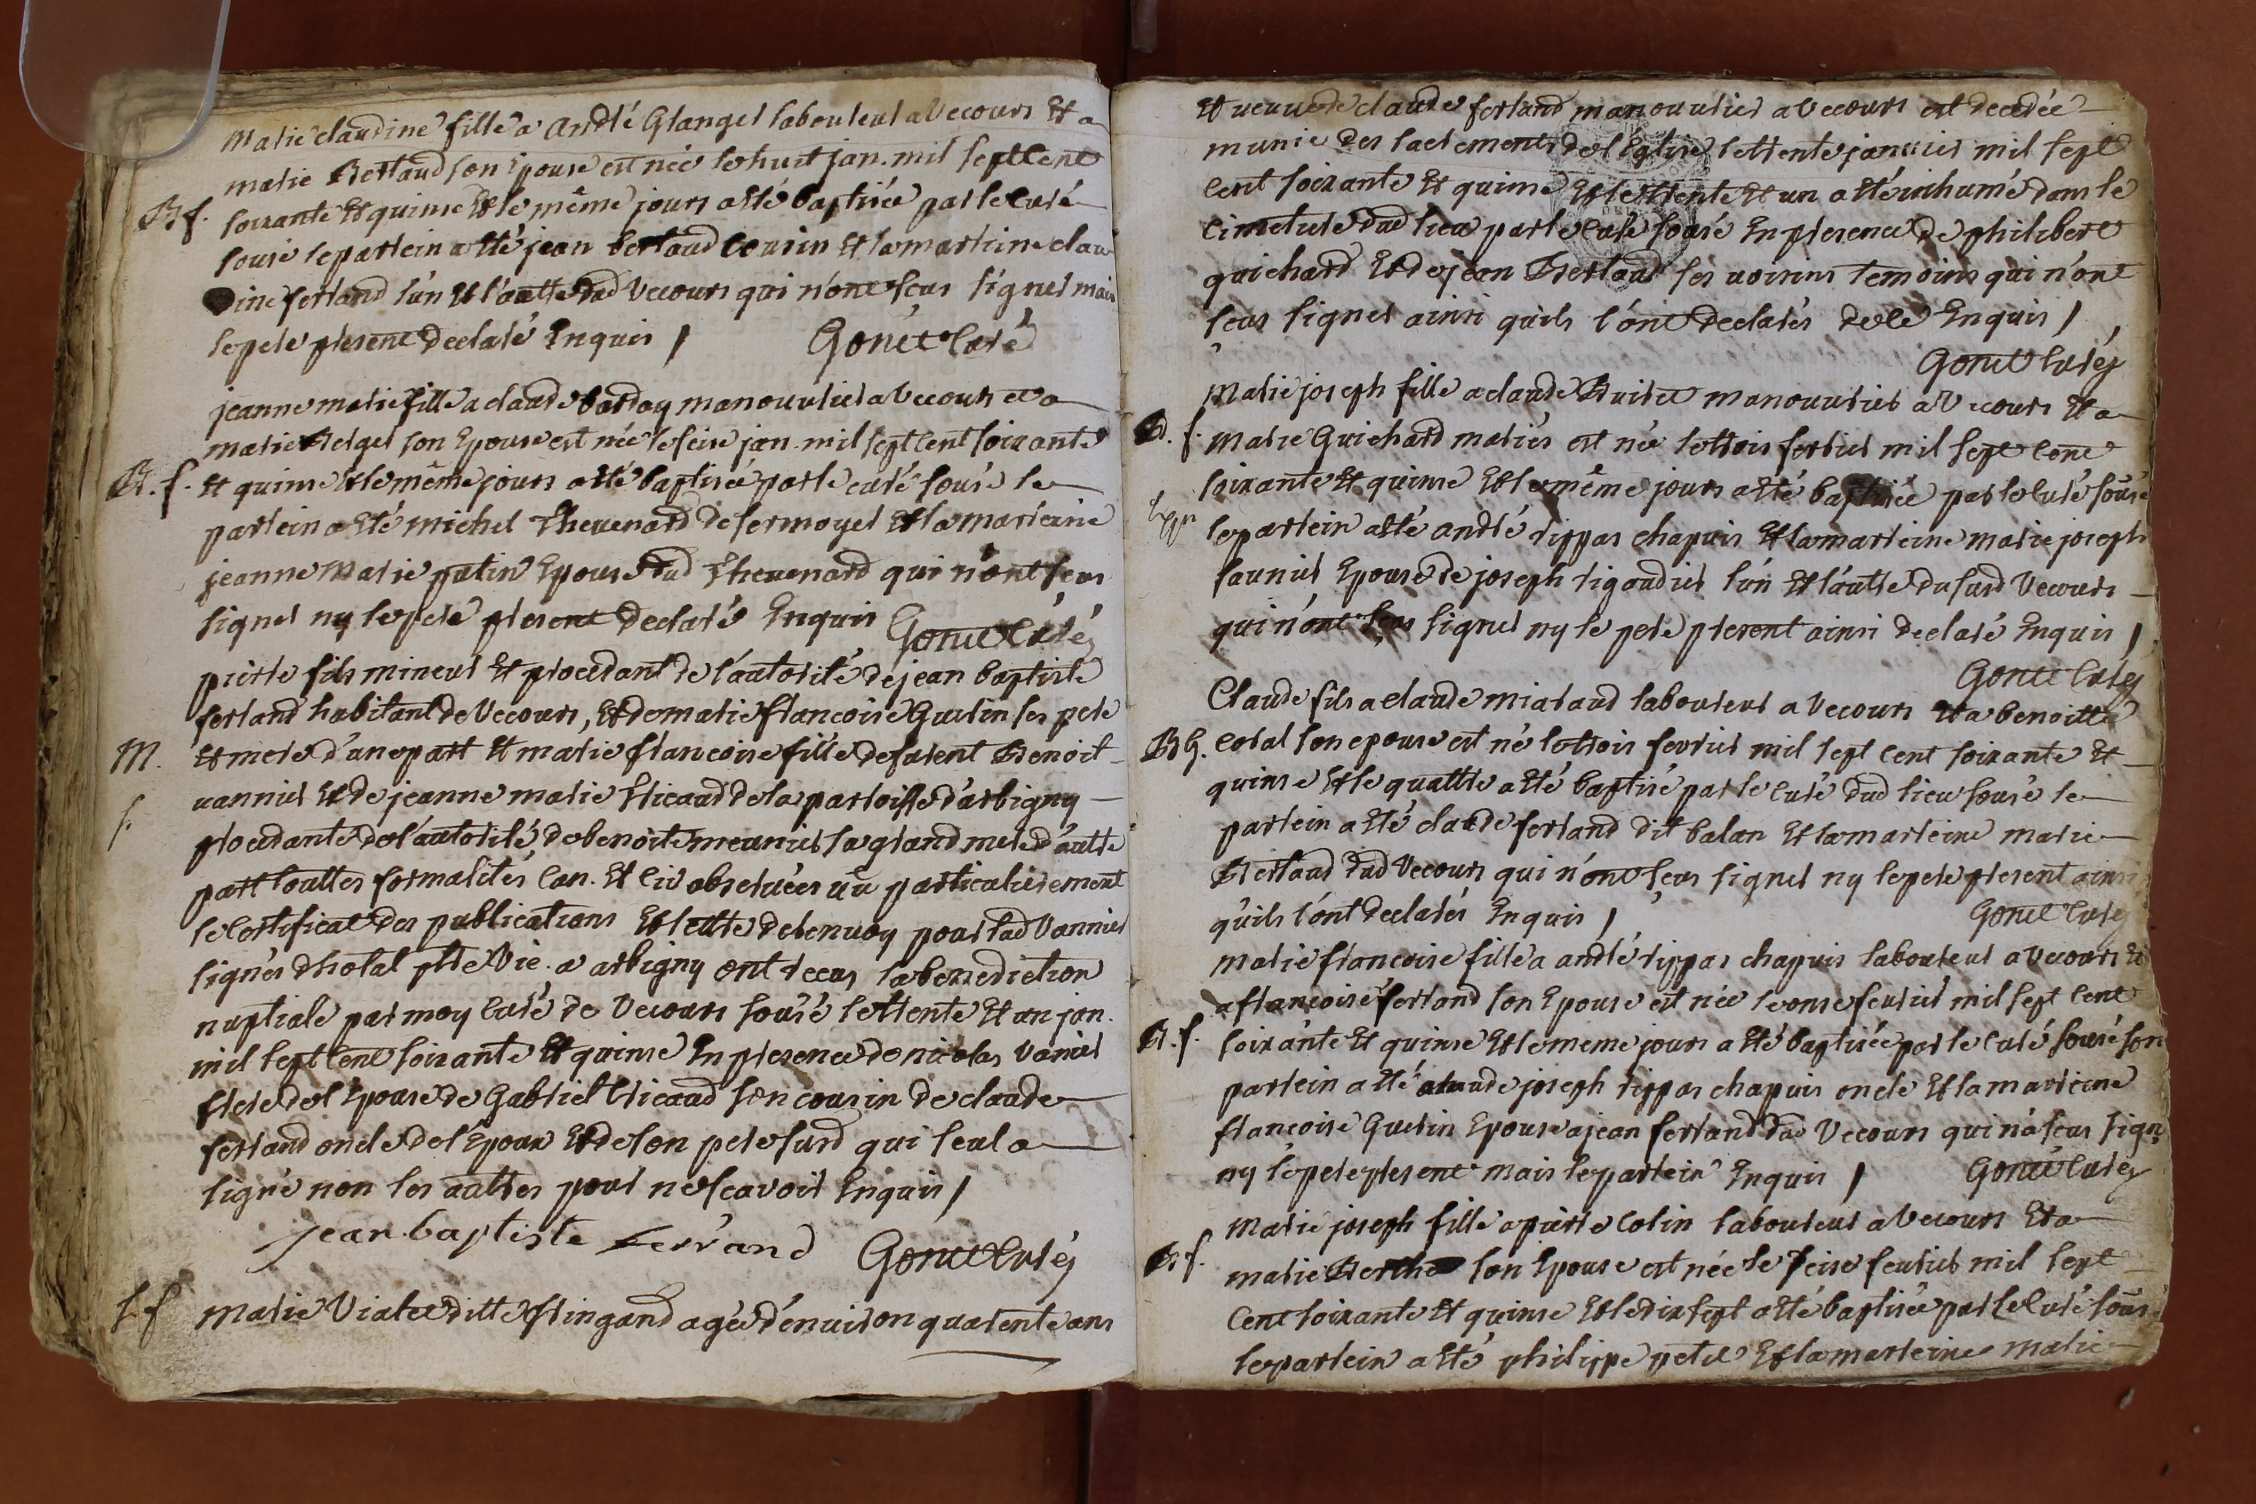 Marie claudine fille a André Granger laboureur a Vecours Et a
marie Berlaud son Epouse est née le huit jan. mil sept cent
B f. soixante Et quinse Et le même jours a Eté baptisée par le curé
sousé le parrein a Eté jean berlaud cousin Et la marrine clau
dine ferland l'un Et l'autre dud Vecours qui n'ont sçus signer mais
le pere present declaré Enquis / Gonet Curé
jeanne marie fille a claude bardoy manouvrier a Vecours et a
marie Berger son Epouse est née le seise jan. mil sept cent soixante
B. f. Et quinse Et le même jours a Eté baptisée par le curé sousé le
parrein a Eté michel thevenard de sermoyer Et la marreine
jeanne Marie putin Epouse dud thevenard qui n'ont sçus
signer ny le pere present declaré Enquis Gonet Curé
pierre fils mineur Et procedant de l'autorité de jean baptiste
ferland habitant de Vecours, Et de marie francoise Guerin ses pere
M. Et mere d'une part Et marie francoise fille de furent Benoit
f. vannier Et de jeanne marie Ericaud de la parroisse d'arbigny
procedante de l'autorité de benoite meunier sa grand mere d'autre
part touttes formalités can. Et civ observées vu particulierement
le certificat des publications Et lettre de renvoy pour lad Vannier
signés dhotal ptre Vic. a arbigny ont recus la benediction
nuptiale par moy curé de Vecours sousé le trente Et un jan.
mil sept cent soixante Et quinse En presence de nicolas Vanier
frere de l'Epouse de Gabriel Ericaud son cousin de claude
ferland oncle de l'Epoux Et de son pere susd qui seul a
signé non les autres pour ne scavoir Enquis /
jean baptiste ferrand Gonet Curé
S f Marie Viatte ditte fringand agée d'environ quarente ans
Et veuve de claude ferland manouvrier a Vecours est decedée
munie des sacrements de l'Eglise le trente janvier mil sept
cent soixante Et quinse Et le trente Et un a Eté inhumé dans le
cimetiere dud lieu par le curé sousé En presence de philibert
guichard Et de jean Berlaud ses voisins temoins qui n'ont
sçus signer ainsi qu'ils l'ont declarés de ce Enquis /
Gonet Curé
Marie joseph fille a claude Buiret manouvrier a Vecours Et a
B. f. Marie Guichard mariés est née le trois fevrier mil sept cent
soixante Et quinse Et le même jours a Eté baptisée par le curé sousé
le parrein a Eté andré rippas chapuis Et la marreine marie joseph
saunier Epouse de joseph rigoudier l'un Et l'autre du susd Vecours
qui n'ont sçus signer ny le pere present ainsi declaré Enquis /
Gonet Curé
Claude fils a claude miaraud laboureur a Vecours Et a benoitte
B G. coral son epouse est né le trois fevrier mil sept cent soixante Et
quinse Et le quattre a Eté baptisé par le curé dud lieu sousé le
parrein a Eté claude ferland dit balan Et la marreine marie
Berlaud dud Vecours qui n'ont sçus signer ny le pere present ainsi
qu'ils l'ont declarés Enquis / Gonet Curé
Marie francoise fille a andré rippas chapuis laboureur a Vecours Et
a francoise ferland son Epouse est née le onse fevrier mil sept cent
B. f. soixante Et quinse Et le meme jours a Eté baptisée par le curé sousé son
parrein a Eté claude joseph rippas chapuis oncle Et la marreine
francoise Guerin Epouse a jean ferland dud Vecours qui n'a sçus signer
ny le pere present mais le parrein Enquis / Gonet Curé
Marie joseph fille a pierre Colin laboureur a Vecours Et a
B f. marie Berthe son Epouse est née le seise fevrier mil sept
cent soixante Et quinse Et le dix sept a Eté baptisée par le curé sousé
le parrein a Eté philippe petit Et la marreine marie